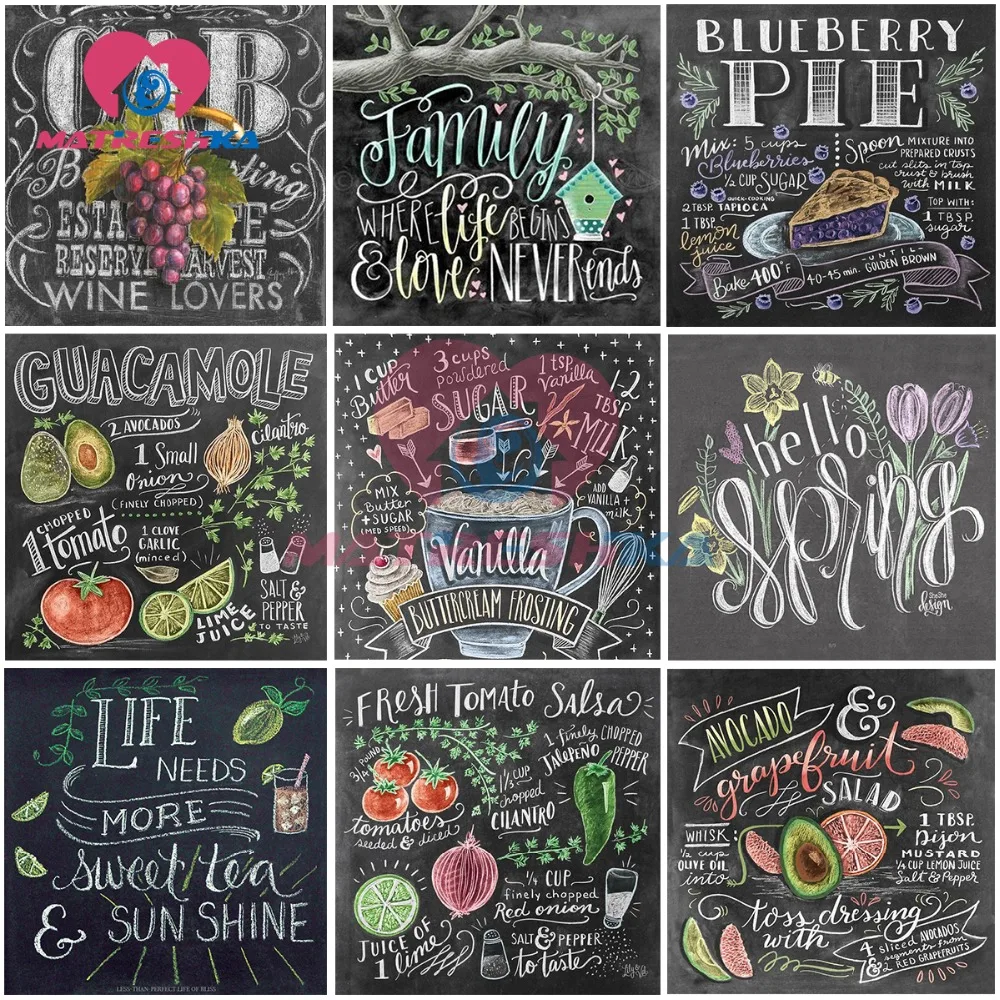 CAB
MATRESHKA
ESTA
RESERV HARVEST
WINE LOVERS
Family
WHERE life BEGINS
& love NEVER ends
BLUEBERRY
PIE
Mix: 5 cups
Blueberries
1/2 CUP SUGAR
QUICK-COOKING
2 TBSP. TAPIOCA
1 TBSP.
lemon
juice
Spoon MIXTURE INTO
PREPARED CRUSTS
cut slits in top
crust & brush
with MILK
TOP WITH:
1 TBSP.
sugar
Bake 400°F 40-45 min. UNTIL
GOLDEN BROWN
GUACAMOLE
2 AVOCADOS
1 Small
Onion
(FINELY CHOPPED)
Cilantro
1 CHOPPED
Tomato
1 CLOVE
GARLIC
(minced)
LIME
JUICE
SALT &
PEPPER
TO TASTE
Lily & Val
1 CUP
Butter
3 cups
powdered
SUGAR
1 tsp.
Vanilla
1-2
TBSP
MILK
MIX
Butter
+ SUGAR
(MED SPEED)
ADD
VANILLA +
milk
MATRESHKA
Vanilla
BUTTERCREAM FROSTING
hello
spring
SheShe
design
LIFE
NEEDS
MORE
sweet tea
& SUNSHINE
LESS-THAN-PERFECT LIFE OF BLISS
FRESH TOMATO SALSA
3/4 POUND
tomatoes
seeded & diced
1/3 CUP
chopped
CILANTRO
1 finely CHOPPED
JALAPEÑO PEPPER
1/4 CUP
finely chopped
Red onion
JUICE OF
1 lime
SALT & PEPPER
to taste
Lily & Val
AVOCADO &
grapefruit
SALAD
WHISK:
1/2 cup
OLIVE OIL
into
1 TBSP.
Dijon
MUSTARD
1/4 CUP LEMON JUICE
Salt & Pepper
toss dressing
with
4 sliced AVOCADOS
& segments from
2 RED GRAPEFRUITS